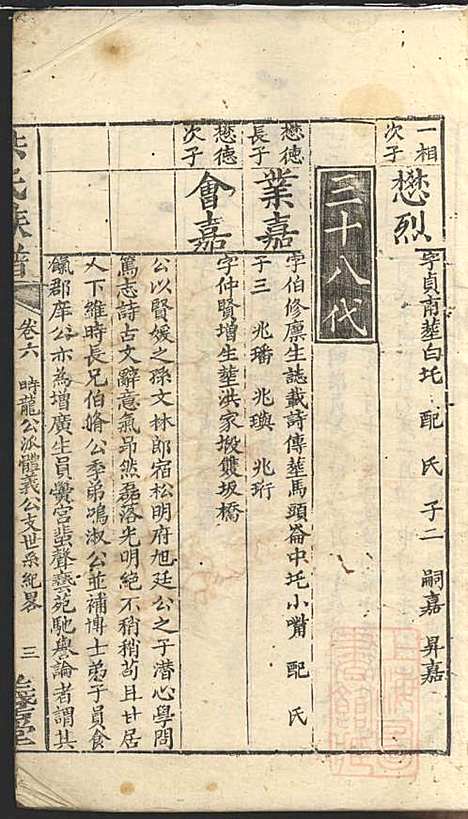 一相
次子
懋烈
字貞甫葬白圫 配 氏 子二 嗣嘉 昇嘉
三十八代
懋德
長子
業嘉
字伯修廪生誌載詩傳葬馬頭崙中圫小嘴 配 氏
子三 兆璠 兆璵 兆珩
懋德
次子
會嘉
字仲賢增生葬洪家塅雙坂橋
公以賢媛之孫文林郎宿松明府旭廷公之子潜心學問
篤志詩古文辭意氣昂然磊落光明絕不稍稍苟且甘居
人下維時長兄伯脩公季弟鳴淑公並補博士弟子員食
餼郡庠公亦為增廣生員黌宮蜚聲藝苑馳譽論者謂其
氏族譜
卷六 時龍公派體義公支世系紀畧 三